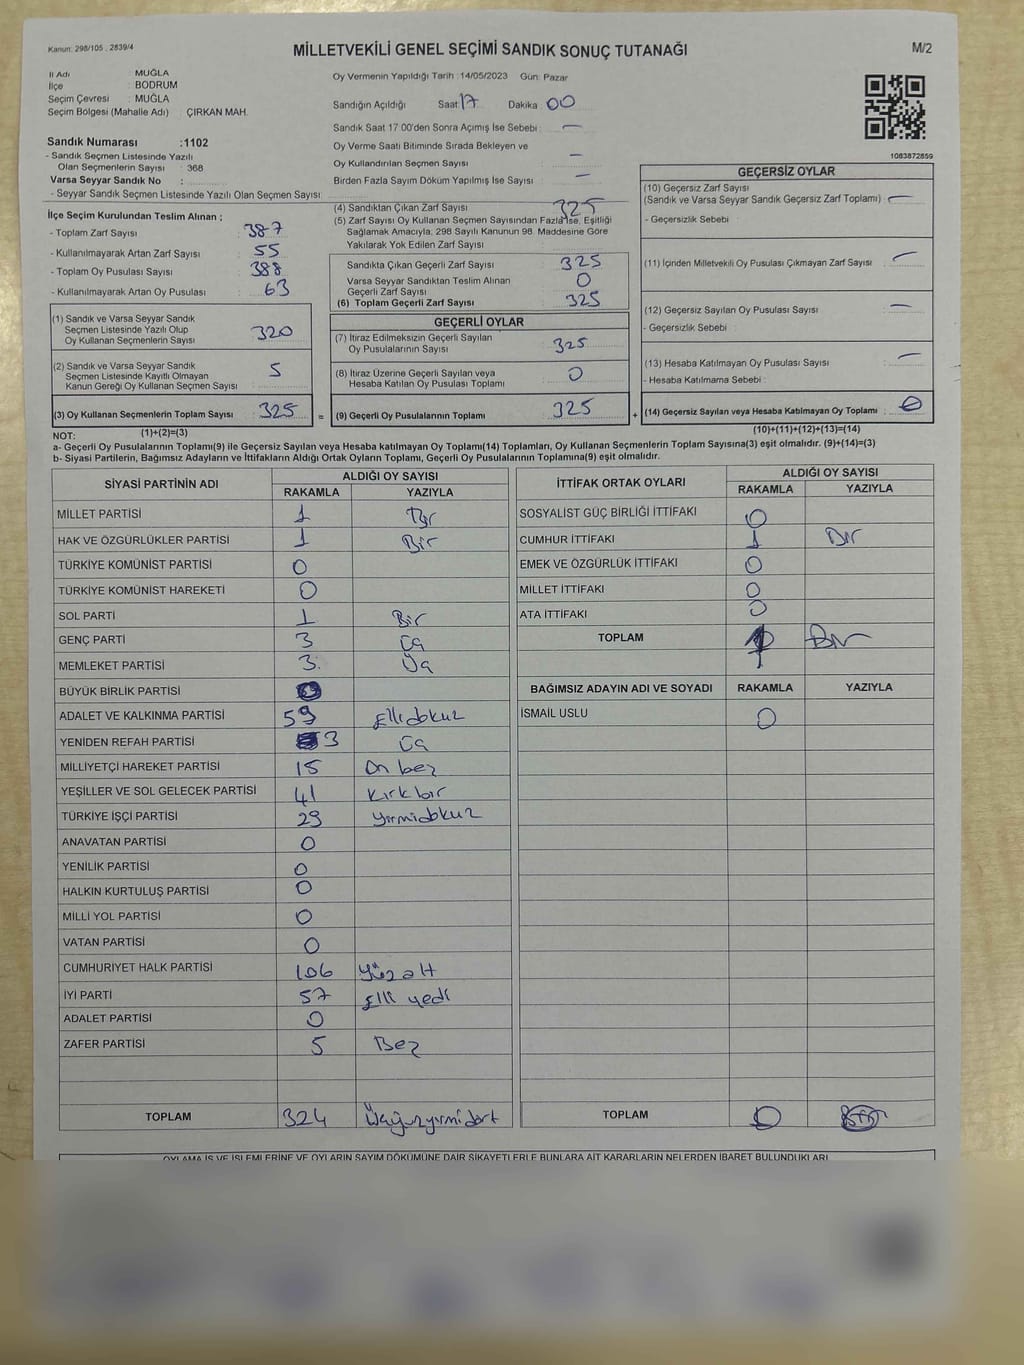 Kanun: 298/105 , 2839/4
MİLLETVEKİLİ GENEL SEÇİMİ SANDIK SONUÇ TUTANAĞI
M/2
İl Adı : MUĞLA
İlçe : BODRUM
Seçim Çevresi : MUĞLA
Seçim Bölgesi (Mahalle Adı) : ÇIRKAN MAH.
Sandık Numarası :1102
- Sandık Seçmen Listesinde Yazılı
Olan Seçmenlerin Sayısı : 368
Varsa Seyyar Sandık No :
- Seyyar Sandık Seçmen Listesinde Yazılı Olan Seçmen Sayısı:
Oy Vermenin Yapıldığı Tarih :14/05/2023 Gün: Pazar
Sandığın Açıldığı Saat: 17 Dakika: 00
Sandık Saat 17:00'den Sonra Açımış İse Sebebi: —
Oy Verme Saati Bitiminde Sırada Bekleyen ve
Oy Kullandırılan Seçmen Sayısı : —
Birden Fazla Sayım Döküm Yapılmış İse Sayısı : —
1083872859
İlçe Seçim Kurulundan Teslim Alınan ;
- Toplam Zarf Sayısı : 387
- Kullanılmayarak Artan Zarf Sayısı : 55
- Toplam Oy Pusulası Sayısı : 388
- Kullanılmayarak Artan Oy Pusulası : 63
(1) Sandık ve Varsa Seyyar Sandık
Seçmen Listesinde Yazılı Olup
Oy Kullanan Seçmenlerin Sayısı : 320
(2) Sandık ve Varsa Seyyar Sandık
Seçmen Listesinde Kayıtlı Olmayan
Kanun Gereği Oy Kullanan Seçmen Sayısı : 5
(3) Oy Kullanan Seçmenlerin Toplam Sayısı : 325
(1)+(2)=(3)
(4) Sandıktan Çıkan Zarf Sayısı : 325
(5) Zarf Sayısı Oy Kullanan Seçmen Sayısından Fazla ise, Eşitliği
Sağlamak Amacıyla, 298 Sayılı Kanunun 98. Maddesine Göre
Yakılarak Yok Edilen Zarf Sayısı :
Sandıkta Çıkan Geçerli Zarf Sayısı : 325
Varsa Seyyar Sandıktan Teslim Alınan
Geçerli Zarf Sayısı : 0
(6) Toplam Geçerli Zarf Sayısı : 325
GEÇERLİ OYLAR
(7) İtiraz Edilmeksizin Geçerli Sayılan
Oy Pusulalarının Sayısı : 325
(8) İtiraz Üzerine Geçerli Sayılan veya
Hesaba Katılan Oy Pusulası Toplamı : 0
= (9) Geçerli Oy Pusulalarının Toplamı : 325
GEÇERSİZ OYLAR
(10) Geçersiz Zarf Sayısı
(Sandık ve Varsa Seyyar Sandık Geçersiz Zarf Toplamı) : —
- Geçersizlik Sebebi :
(11) İçinden Milletvekili Oy Pusulası Çıkmayan Zarf Sayısı : —
(12) Geçersiz Sayılan Oy Pusulası Sayısı : —
- Geçersizlik Sebebi :
(13) Hesaba Katılmayan Oy Pusulası Sayısı : —
- Hesaba Katılmama Sebebi :
+ (14) Geçersiz Sayılan veya Hesaba Katılmayan Oy Toplamı : 0
(10)+(11)+(12)+(13)=(14)
NOT:
a- Geçerli Oy Pusulalarının Toplamı(9) ile Geçersiz Sayılan veya Hesaba katılmayan Oy Toplamı(14) Toplamları, Oy Kullanan Seçmenlerin Toplam Sayısına(3) eşit olmalıdır. (9)+(14)=(3)
b- Siyasi Partilerin, Bağımsız Adayların ve İttifakların Aldığı Ortak Oyların Toplamı, Geçerli Oy Pusulalarının Toplamına(9) eşit olmalıdır.
SİYASİ PARTİNİN ADI ALDIĞI OY SAYISI
RAKAMLA YAZIYLA
MİLLET PARTİSİ 1
HAK VE ÖZGÜRLÜKLER PARTİSİ 1 Bir
TÜRKİYE KOMÜNİST PARTİSİ 0
TÜRKİYE KOMÜNİST HAREKETİ 0
SOL PARTİ 1 Bir
GENÇ PARTİ 3 Üç
MEMLEKET PARTİSİ 3 Üç
BÜYÜK BİRLİK PARTİSİ
ADALET VE KALKINMA PARTİSİ 59 Ellidokuz
YENİDEN REFAH PARTİSİ 3 Üç
MİLLİYETÇİ HAREKET PARTİSİ 15 On beş
YEŞİLLER VE SOL GELECEK PARTİSİ 41 Kırkbir
TÜRKİYE İŞÇİ PARTİSİ 29 Yirmidokuz
ANAVATAN PARTİSİ 0
YENİLİK PARTİSİ 0
HALKIN KURTULUŞ PARTİSİ 0
MİLLİ YOL PARTİSİ 0
VATAN PARTİSİ 0
CUMHURİYET HALK PARTİSİ 106 Yüz altı
İYİ PARTİ 57 Elli yedi
ADALET PARTİSİ 0
ZAFER PARTİSİ 5 Beş
TOPLAM 324 Üçyüzyirmidört
İTTİFAK ORTAK OYLARI ALDIĞI OY SAYISI
RAKAMLA YAZIYLA
SOSYALİST GÜÇ BİRLİĞİ İTTİFAKI 0
CUMHUR İTTİFAKI 1 Bir
EMEK VE ÖZGÜRLÜK İTTİFAKI 0
MİLLET İTTİFAKI 0
ATA İTTİFAKI 0
TOPLAM 1 Bir
BAĞIMSIZ ADAYIN ADI VE SOYADI RAKAMLA YAZIYLA
İSMAİL USLU 0
TOPLAM 0
OYLAMA İŞ VE İŞLEMLERİNE VE OYLARIN SAYIM DÖKÜMÜNE DAİR ŞİKAYETLERLE BUNLARA AİT KARARLARIN NELERDEN İBARET BULUNDUKLARI